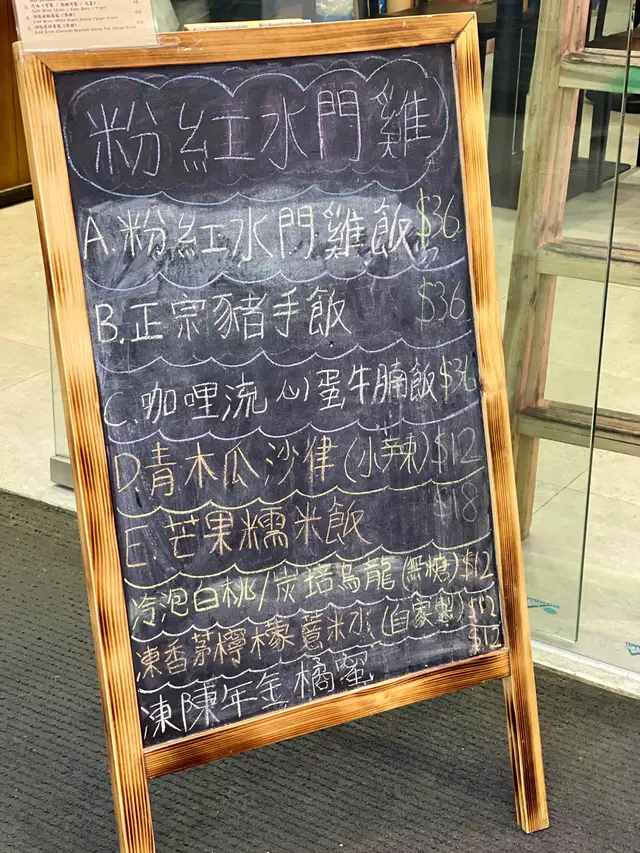 粉紅水門雞
A.粉紅水門雞飯$36
B.正宗豬手飯 $36
C.咖哩流心蛋牛腩飯$36
D.青木瓜沙律(小辣)$12
E.芒果糯米飯 $18
冷泡白桃/炭培烏龍(無糖)$12
凍香茅檸檬薏米水(自家製)$12
凍陳年金橘蜜 $12